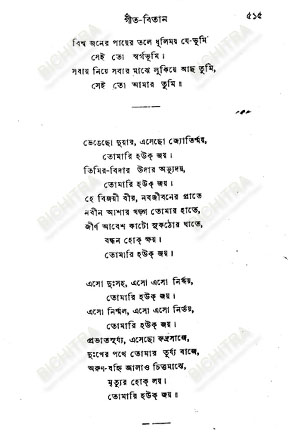 গীত-বিতান ৫১৫
বিশ্ব জনের পায়ের তলে ধূলিময় যে-ভূমি
সেই তো স্বর্গভূমি।
সবায় নিয়ে সবার মাঝে লুকিয়ে আছ তুমি,
সেই তো আমার তুমি॥
ভেঙেছো দুয়ার, এসেছো জ্যোতির্ময়,
তোমারি হউক্ জয়।
তিমির-বিদার উদার অভ্যুদয়,
তোমারি হউক্ জয়।
হে বিজয়ী বীর, নবজীবনের প্রাতে
নবীন আশার খড়্গ তোমার হাতে,
জীর্ণ আবেশ কাটো সুকঠোর ঘাতে,
বন্ধন হোক্ ক্ষয়।
তোমারি হউক্ জয়।
এসো দুঃসহ, এসো এসো নির্দয়,
তোমারি হউক্ জয়।
এসো নির্মল, এসো এসো নির্ভয়,
তোমারি হউক্ জয়।
প্রভাতসূর্য্য, এসেছো রুদ্রসাজে,
দুঃখের পথে তোমার তূর্য্য বাজে,
অরুণ-বহ্নি জ্বালাও চিত্তমাঝে,
মৃত্যুর হোক্ লয়।
তোমারি হউক্ জয়॥
BICHITRA